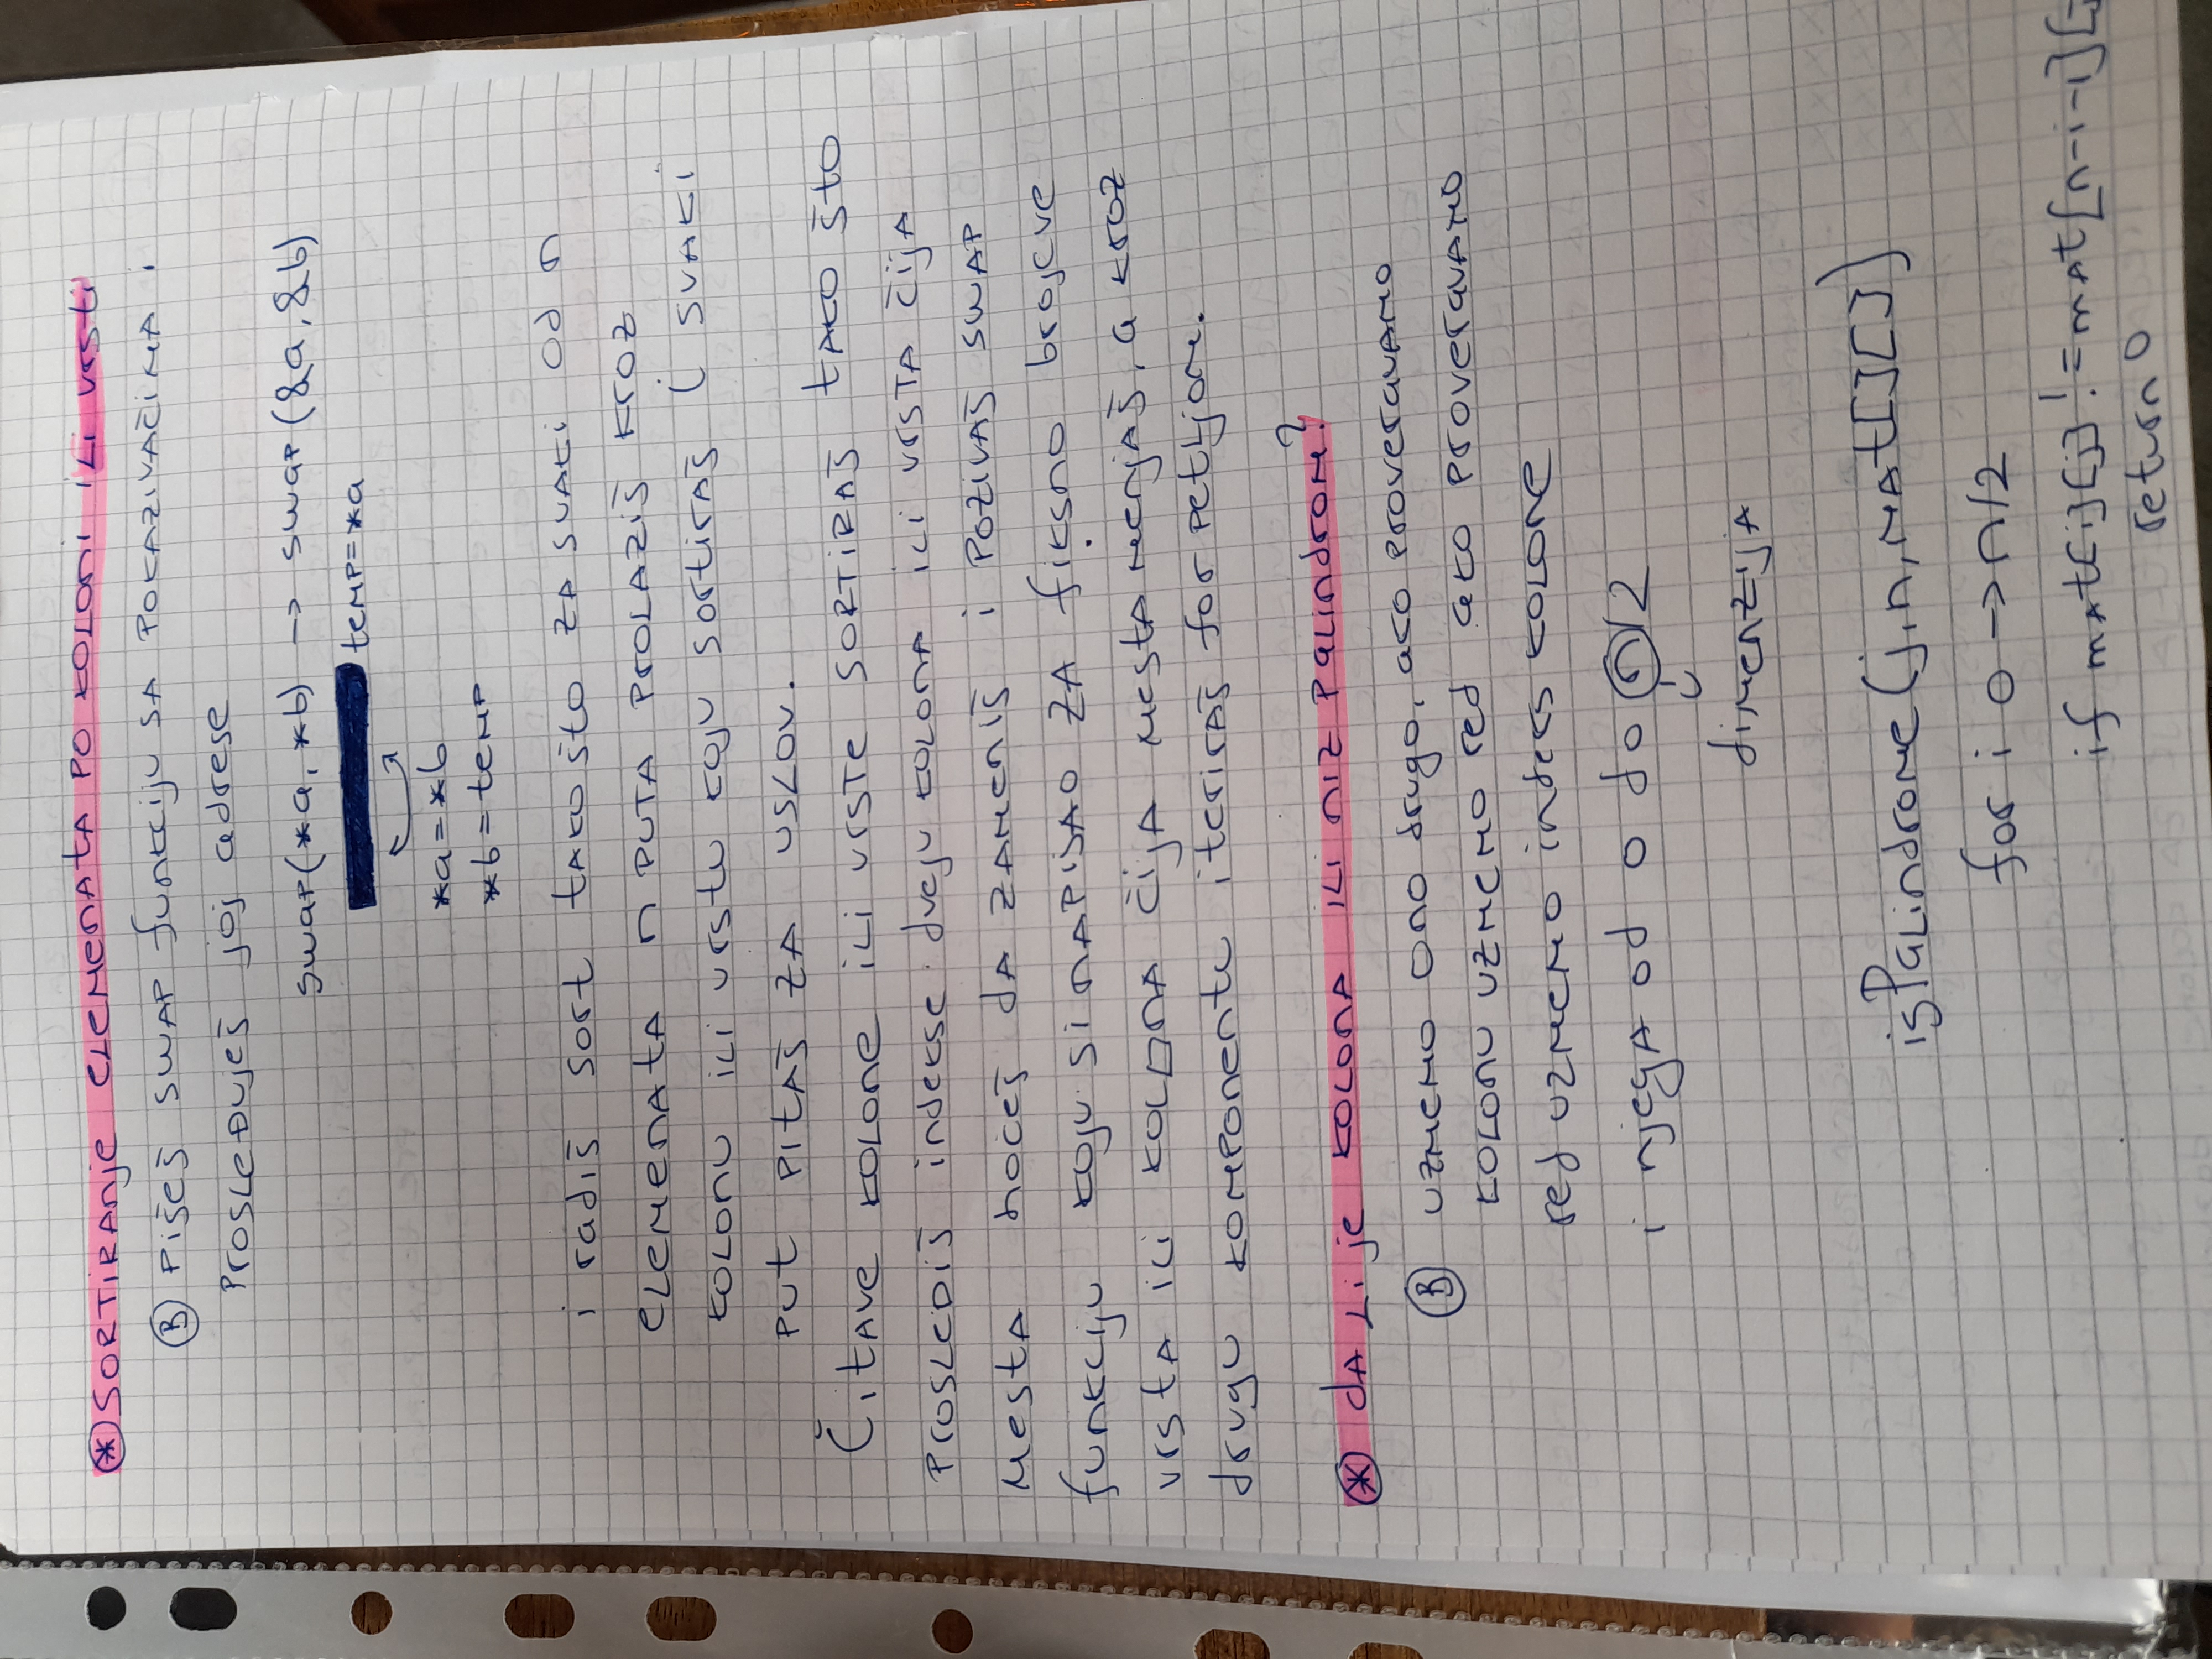 * SORTIRANJE ELEMENATA PO KOLONI ILI VRSTI
B Pišeš SWAP funkciju SA POKAZIVAČIMA i
PROSLEĐUJEŠ joj adrese
swap(*a, *b) -> swap(&a, &b)
temp=*a
*a=*b
*b=temp
i radiš sort tako što za svaki od n
elemenata n puta prolaziš kroz
kolonu ili vrstu koju sortiraš i svaki
put pitaš za uslov.
Čitave kolone ili vrste sortiraš tako što
proslediš indekse dveju kolona ili vrsta čija
mesta hoćeš da zameniš i pozivaš swap
funkciju koju si napisao za fiksno brojeve
vrsta ili kolona čija mesta menjaš, a kroz
drugu komponentu iteriraš for petljom.
* da li je kolona ili niz palindrom?
B uzmemo ono drugo, ako proveravamo
kolonu uzmemo red ako proveravamo
red uzmemo indeks kolone
i njega od 0 do n/2
dimenzija
isPalindrome(j,n,mat[][])
for i 0 -> n/2
if mat[i][j] != mat[n-i-1][j
return 0